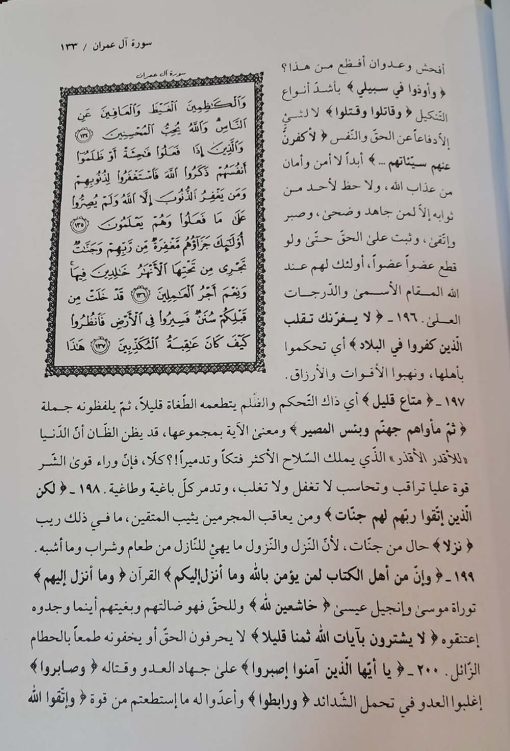 سورة آل عمران / ١٣٣
أفحش وعدوان أفظع من هذا؟
﴿ وأُوذوا في سبيلي ﴾ بأشدّ أنواع
التنكيل ﴿ وقاتلوا وقتلوا ﴾ لا لشيٍ
إلا دفاعاً عن الحقّ والنّفس ﴿ لأكفرنَّ
عنهم سيّئاتهم ... ﴾ أبداً لا أمن وأمان
من عذاب الله، ولا حظ لأحد من
ثوابه إلاّ لمن جاهد وضحى، وصبر
وإتّقىٰ، وثبت علىٰ الحقّ حتّىٰ ولو
قطع عضواً عضواً، أولئك لهم عند
الله المقام الأسمىٰ والدّرجات
العلىٰ. ١٩٦ ـ ﴿ لا يغرّنك تقلب
الّذين كفروا في البلاد ﴾ أي تحكموا
بأهلها، ونهبوا الأقوات والأرزاق.
سورة آل عمران
وَالْكَٰظِمِينَ الْغَيْظَ وَالْعَافِينَ عَنِ
النَّاسِ وَاللَّهُ يُحِبُّ الْمُحْسِنِينَ ١٣٤
وَالَّذِينَ إِذَا فَعَلُوا فَٰحِشَةً أَوْ ظَلَمُوا
أَنفُسَهُمْ ذَكَرُوا اللَّهَ فَاسْتَغْفَرُوا لِذُنُوبِهِمْ
وَمَن يَغْفِرُ الذُّنُوبَ إِلَّا اللَّهُ وَلَمْ يُصِرُّوا
عَلَىٰ مَا فَعَلُوا وَهُمْ يَعْلَمُونَ ١٣٥
أُولَٰئِكَ جَزَاؤُهُم مَّغْفِرَةٌ مِّن رَّبِّهِمْ وَجَنَّٰتٌ
تَجْرِى مِن تَحْتِهَا الْأَنْهَٰرُ خَٰلِدِينَ فِيهَا
وَنِعْمَ أَجْرُ الْعَٰمِلِينَ ١٣٦ قَدْ خَلَتْ مِن
قَبْلِكُمْ سُنَنٌ فَسِيرُوا فِى الْأَرْضِ فَانظُرُوا
كَيْفَ كَانَ عَٰقِبَةُ الْمُكَذِّبِينَ ١٣٧ هَٰذَا
١٩٧ ـ ﴿ متاع قليل ﴾ أي ذاك التّحكم والظّلم يتطعمه الطّغاة قليلاً، ثمّ يلفظونه جملة
﴿ ثمّ مأواهم جهنّم وبئس المصير ﴾ ومعنىٰ الآية بمجموعها، قد يظن الظّان أنّ الدّنيا
«للأقدر الأقذر» الّذي يملك السّلاح الأكثر فتكاً وتدميراً!؟ كلاّ، فإنّ وراء قوىٰ الشّر
قوة عليا تراقب وتحاسب لا تغفل ولا تغلب، وتدمر كلّ باغية وطاغية. ١٩٨ ـ ﴿ لكن
الّذين إتّقوا ربّهم لهم جنّات ﴾ ومن يعاقب المجرمين يثيب المتقين، ما في ذلك ريب
﴿ نزلا ﴾ حال من جنّات، لأنّ النّزل والنّزول ما يهئّ للنّازل من طعام وشراب وما أشبه.
١٩٩ ـ ﴿ وإنّ من أهل الكتاب لمن يؤمن بالله وما أنزل إليكم ﴾ القرآن ﴿ وما أنزل إليهم ﴾
توراة موسىٰ وإنجيل عيسىٰ ﴿ خاشعين لله ﴾ وللحقّ فهو ضالتهم وبغيتهم أينما وجدوه
إعتنقوه ﴿ لا يشترون بآيات الله ثمنا قليلا ﴾ لا يحرفون الحقّ أو يخفونه طمعاً بالحطام
الزّائل. ٢٠٠ ـ ﴿ يا أيّها الّذين آمنوا إصبروا ﴾ علىٰ جهاد العدو وقتاله ﴿ وصابروا ﴾
إغلبوا العدو في تحمل الشّدائد ﴿ ورابطوا ﴾ وأعدّوا له ما إستطعتم من قوة ﴿ وإتّقوا الله